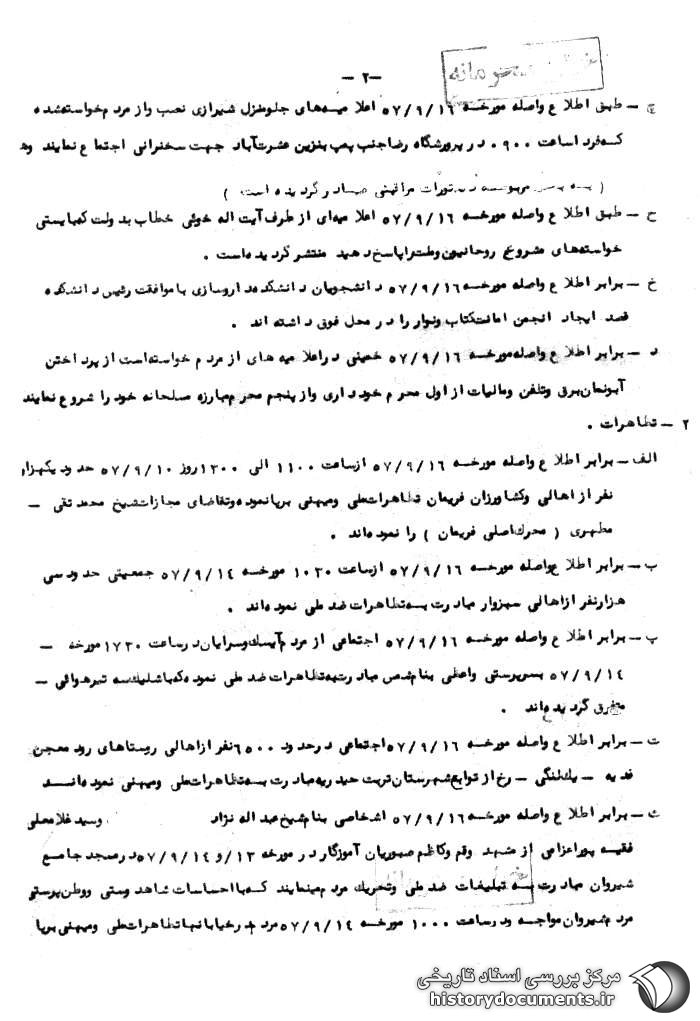 -۲-
محرمانه
چ - طبق اطلاع واصله مورخسه ۵۷/۹/۱۶ اعلامیه‌های جلو منزل شیرازی نصب و از مردم خواسته‌شده
که فردا ساعت ۹۰۰ در ورزشگاه رضا جنب پمپ بنزین عشرت‌آباد جهت سخنرانی اجتماع نمایند
دستورات مراقبتی صادر گردیده است )
ح - طبق اطلاع واصله مورخسه ۵۷/۹/۱۶ اعلامیه‌ای از طرف آیت اله خوئی خطاب بدولت که بایستی
خواسته‌های مشروع روحانیون و ملت را پاسخ دهید منتشر گردیده‌است .
خ - برابر اطلاع واصله مورخسه ۵۷/۹/۱۶ دانشجویان دانشکده داروسازی با موافقت رئیس دانشکده
قصد ایجاد انجمن امانت کتاب و نوار را در محل فوق داشته اند .
د - برابر اطلاع واصله مورخسه ۵۷/۹/۱۶ خمینی در اعلامیه های از مردم خواسته‌است از پرداختن
آبونمان برق و تلفن و مالیات از اول محرم خودداری و از پنجم محرم مبارزه مسلحانه خود را شروع نمایند
۲ - تظاهرات .
الف - برابر اطلاع واصله مورخسه ۵۷/۹/۱۶ از ساعت ۱۱۰۰ الی ۱۳۰۰ روز ۵۷/۹/۱۰ حدود یکهزار
نفر از اهالی و کشاورزان فریمان تظاهرات ملی و میهنی برپا نموده و تقاضای مجازات شیخ محمد تقی -
مطهری ( محرک اصلی فریمان ) را نموده‌اند .
ب - برابر اطلاع واصله مورخسه ۵۷/۹/۱۶ از ساعت ۱۰۳۰ مورخسه ۵۷/۹/۱۴ جمعیتی حدود سی
هزار نفر از اهالی سبزوار مبادرت بسه تظاهرات ضد ملی نموده‌اند .
پ - برابر اطلاع واصله مورخسه ۵۷/۹/۱۶ اجتماعی از مردم آیسک و سرایان در ساعت ۱۷۳۰ مورخه -
۵۷/۹/۱۴ بسرپرستی واعظی بنام مبادرت به تظاهرات ضد ملی نموده که با شلیک سه تیر هوائی -
متفرق گردیده‌اند .
ت - برابر اطلاع واصله مورخسه ۵۷/۹/۱۶ اجتماعی در حدود ۶۵۰۰ نفر از اهالی روستاهای رود معجن
فدیه - یک‌لنگی - رخ از توابع شهرستان تربت حیدریه مبادرت بسه تظاهرات ملی و میهنی نموده‌انـــد
ث - برابر اطلاع واصله مورخسه ۵۷/۹/۱۶ اشخاصی بنام شیخ عبداله نژاد و سید غلامعلی
فقیه پور اعزامی از مشهد و قم و کاظم صبوریان آموزگار در مورخه ۱۳ و ۵۷/۹/۱۴ در مسجد جامع
شیروان مبادرت بسه تبلیغات ضد ملی و تحریک مردم مینمایند که با احساسات شاهدوستی و وطن‌پرستی
مردم شیروان مواجه و در ساعت ۱۰۰۰ مورخسه ۵۷/۹/۱۴ مردم در خیابانها تظاهرات ملی و میهنی برپا
مرکز بررسی اسناد تاریخی
historydocuments.ir